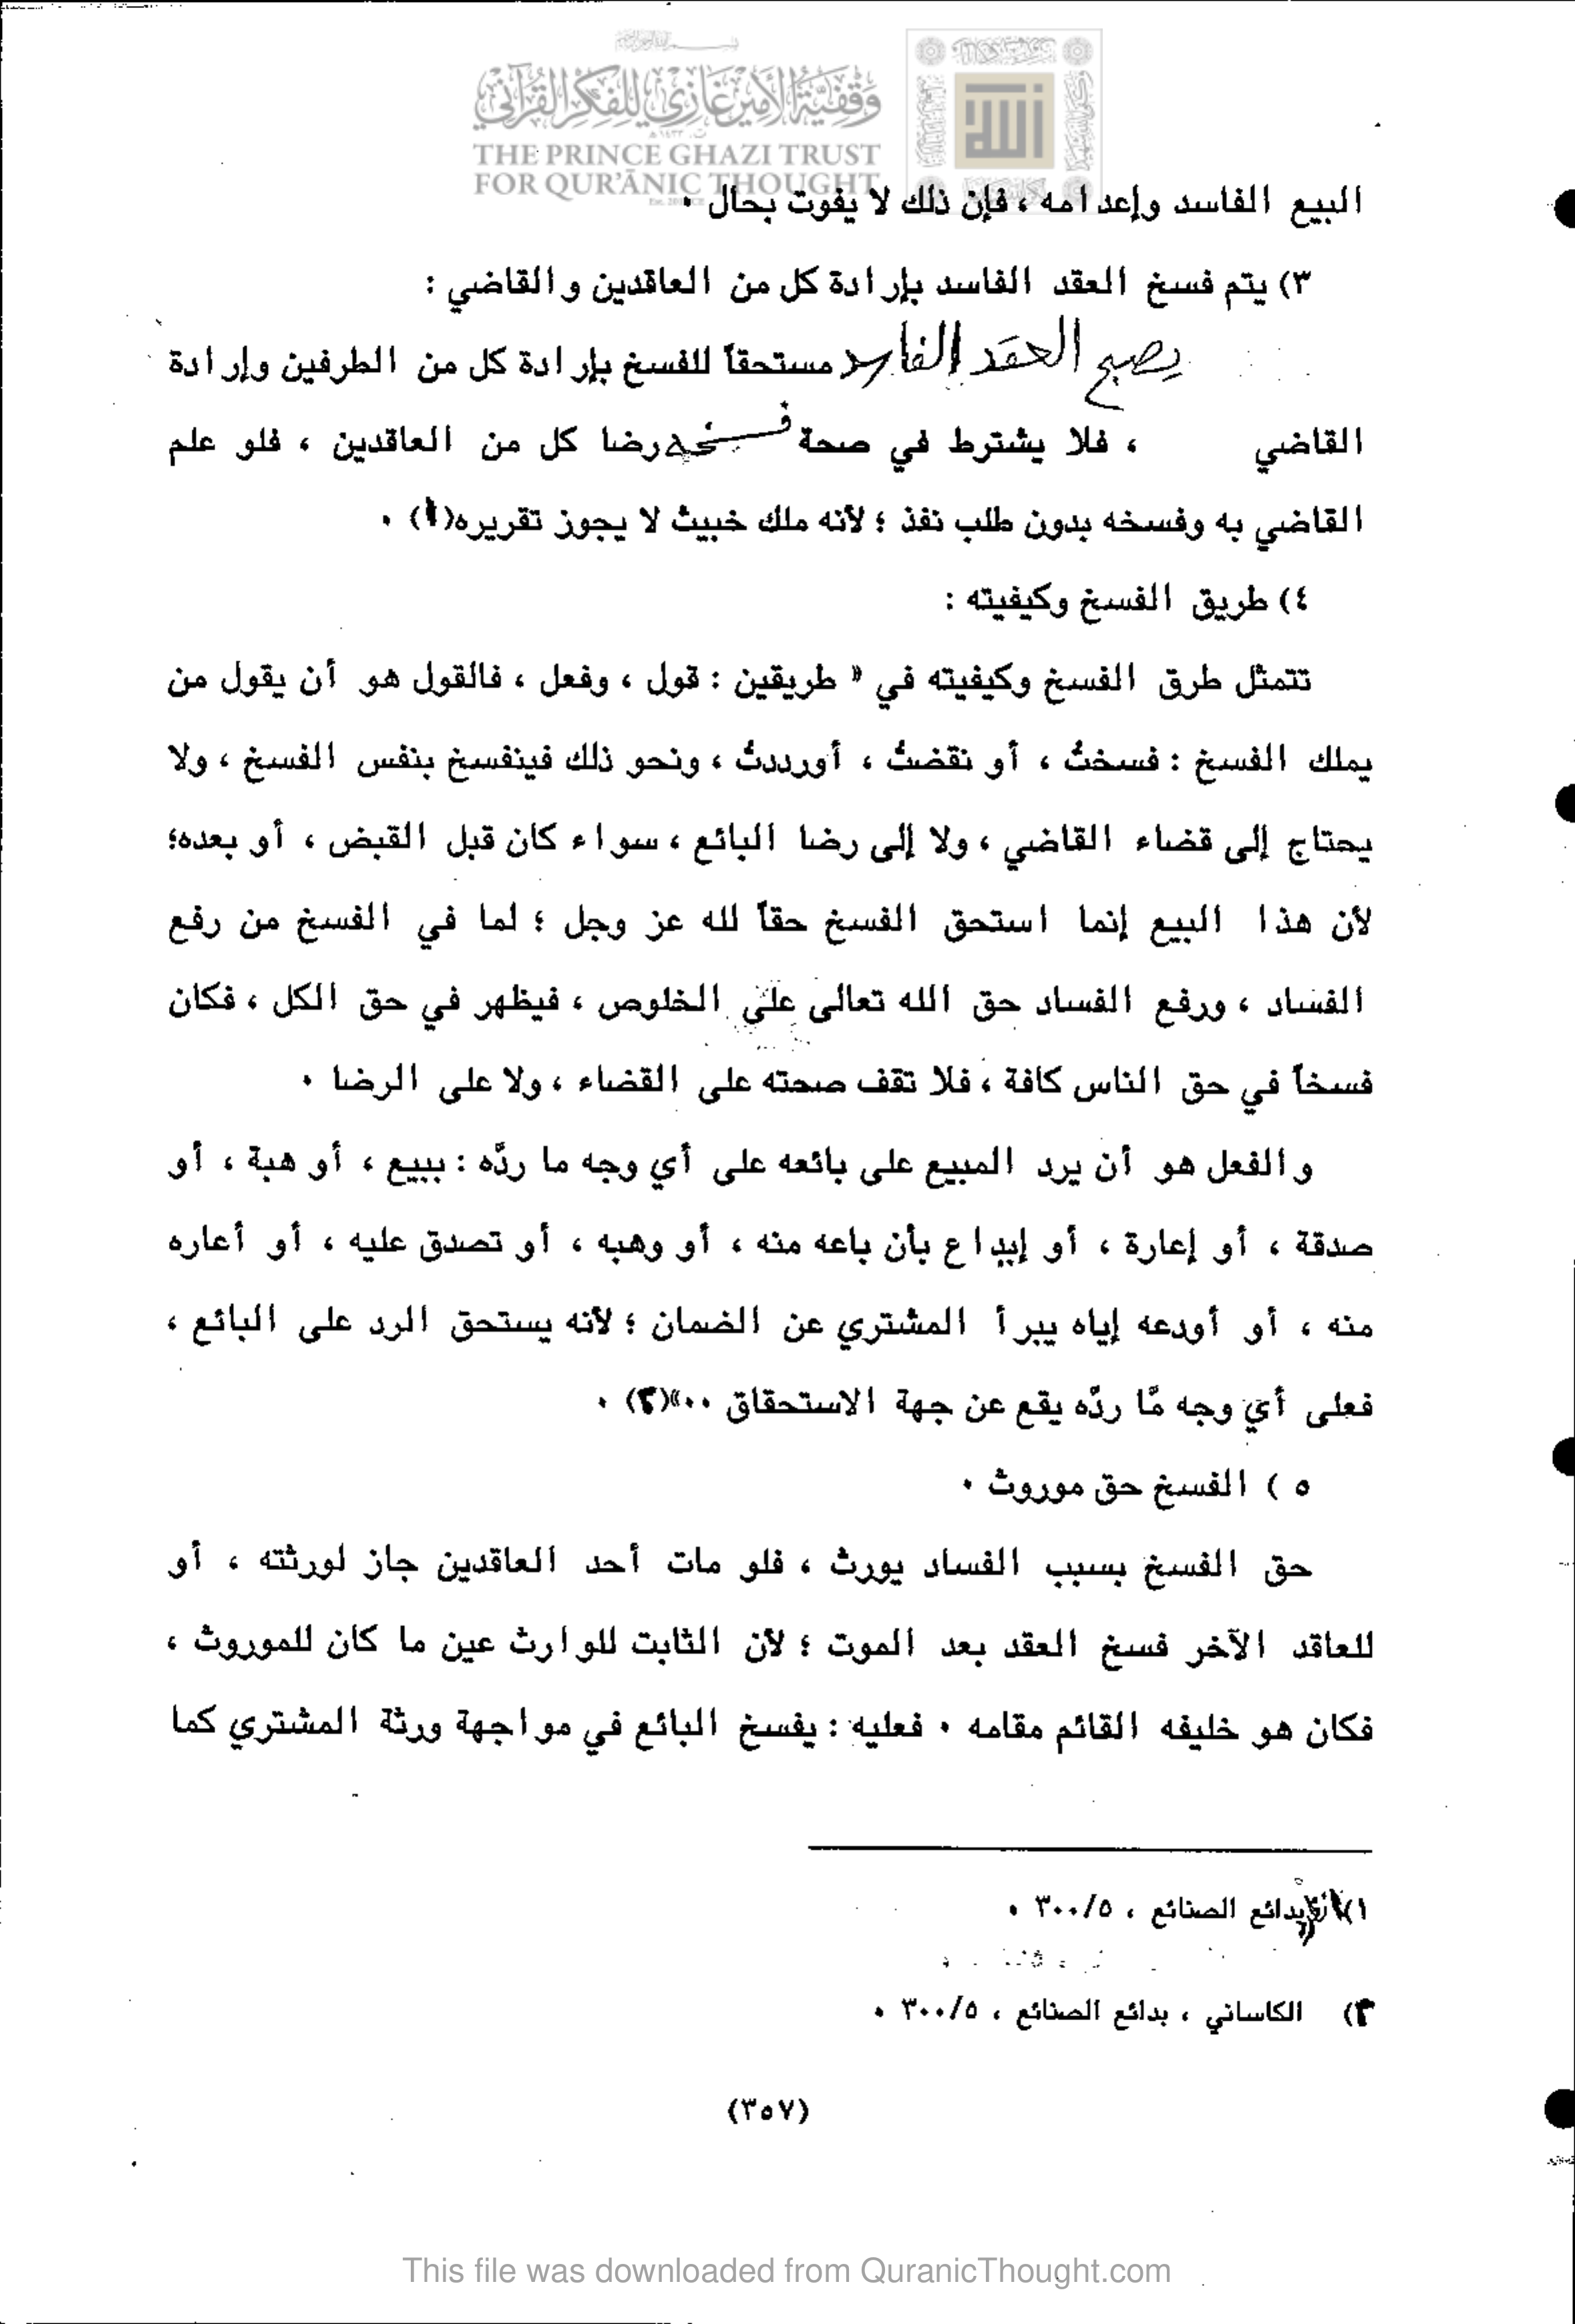 وقفية الأمير غازي للفكر القرآني
THE PRINCE GHAZI TRUST
FOR QUR'ĀNIC THOUGHT
البيع الفاسد وإعدامه ، فإن ذلك لا يفوت بحال ٠
٣) يتم فسخ العقد الفاسد بإرادة كل من العاقدين والقاضي :
يصبح العقد الفاسد مستحقاً للفسخ بإرادة كل من الطرفين وإرادة
القاضي ، فلا يشترط في صحة فسخه رضا كل من العاقدين ، فلو علم
القاضي به وفسخه بدون طلب نفذ ؛ لأنه ملك خبيث لا يجوز تقريره(١) ٠
٤) طريق الفسخ وكيفيته :
تتمثل طرق الفسخ وكيفيته في « طريقين : قول ، وفعل ، فالقول هو أن يقول من
يملك الفسخ : فسختُ ، أو نقضتُ ، أورددتُ ، ونحو ذلك فينفسخ بنفس الفسخ ، ولا
يحتاج إلى قضاء القاضي ، ولا إلى رضا البائع ، سواء كان قبل القبض ، أو بعده؛
لأن هذا البيع إنما استحق الفسخ حقاً لله عز وجل ؛ لما في الفسخ من رفع
الفساد ، ورفع الفساد حق الله تعالى على الخلوص ، فيظهر في حق الكل ، فكان
فسخاً في حق الناس كافة ، فلا تقف صحته على القضاء ، ولا على الرضا ٠
والفعل هو أن يرد المبيع على بائعه على أي وجه ما ردَّه : ببيع ، أو هبة ، أو
صدقة ، أو إعارة ، أو إيداع بأن باعه منه ، أو وهبه ، أو تصدق عليه ، أو أعاره
منه ، أو أودعه إياه يبرأ المشتري عن الضمان ؛ لأنه يستحق الرد على البائع ،
فعلى أي وجه مَّا ردَّه يقع عن جهة الاستحقاق ٠٠»(٢) ٠
٥ ) الفسخ حق موروث ٠
حق الفسخ بسبب الفساد يورث ، فلو مات أحد العاقدين جاز لورثته ، أو
للعاقد الآخر فسخ العقد بعد الموت ؛ لأن الثابت للوارث عين ما كان للموروث ،
فكان هو خليفه القائم مقامه ٠ فعليه : يفسخ البائع في مواجهة ورثة المشتري كما
١) بدائع الصنائع ، ٣٠٠/٥ ٠
٢) الكاساني ، بدائع الصنائع ، ٣٠٠/٥ ٠
(٣٥٧)
This file was downloaded from QuranicThought.com